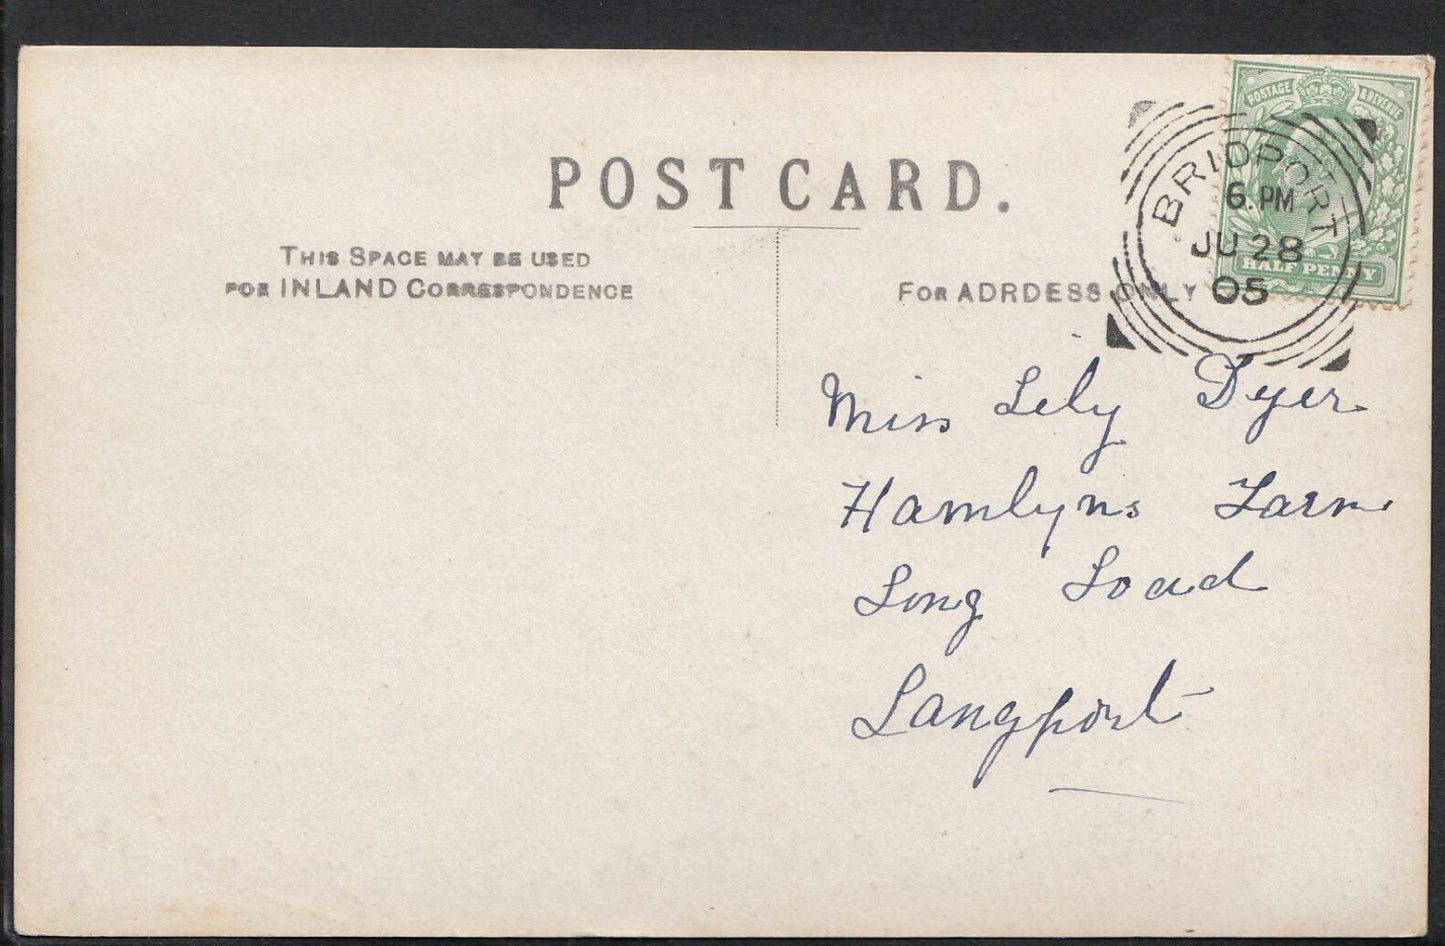 POST CARD.
THIS SPACE MAY BE USED
FOR INLAND CORRESPONDENCE
FOR ADRDESS ONLY
POSTAGE & REVENUE
HALF PENNY
BRIDPORT
6. PM
JU 28
05
Miss Lily Dyer
Hamlyns Farm
Long Load
Langport